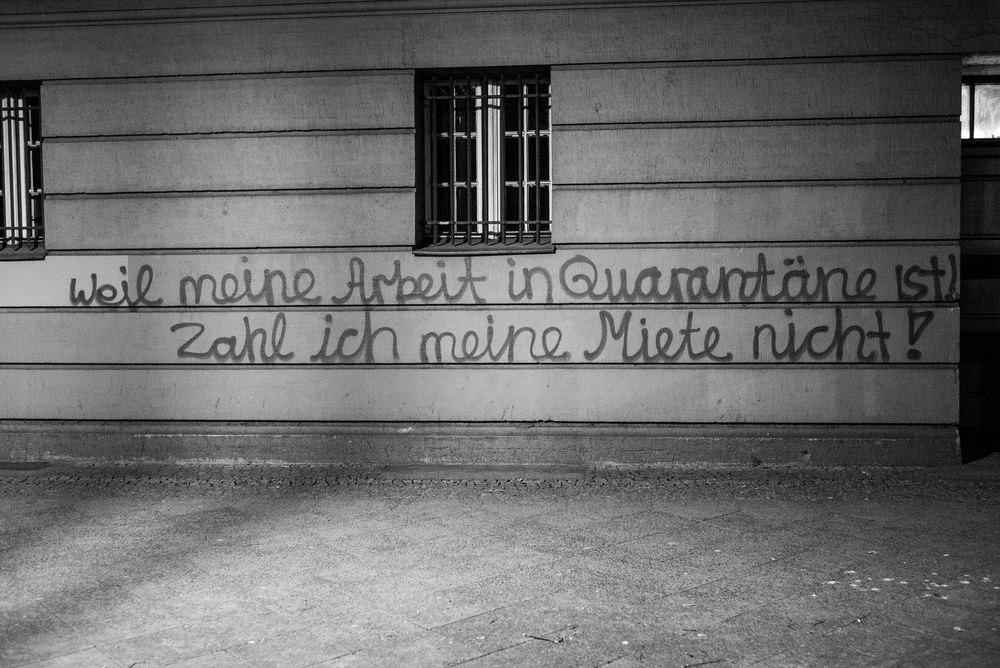 weil meine Arbeit in Quarantäne ist!
Zahl ich meine Miete nicht!